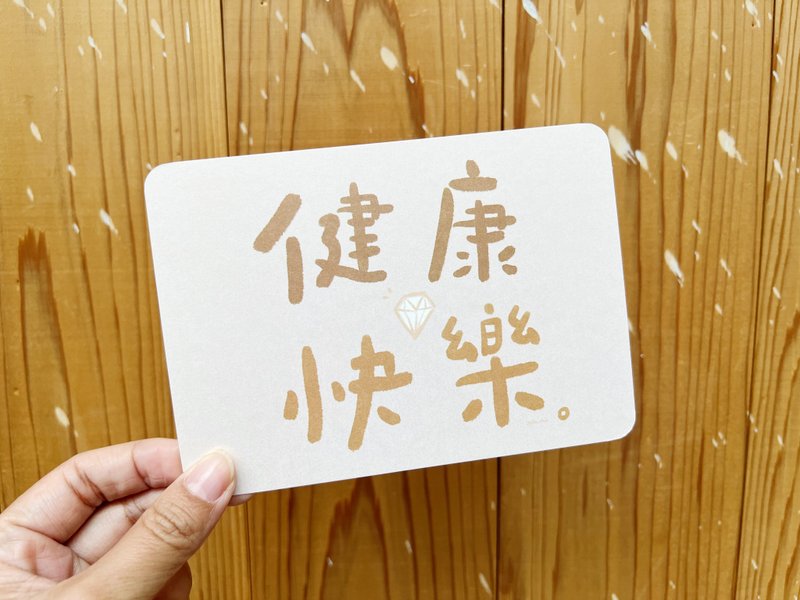 健康
快樂。